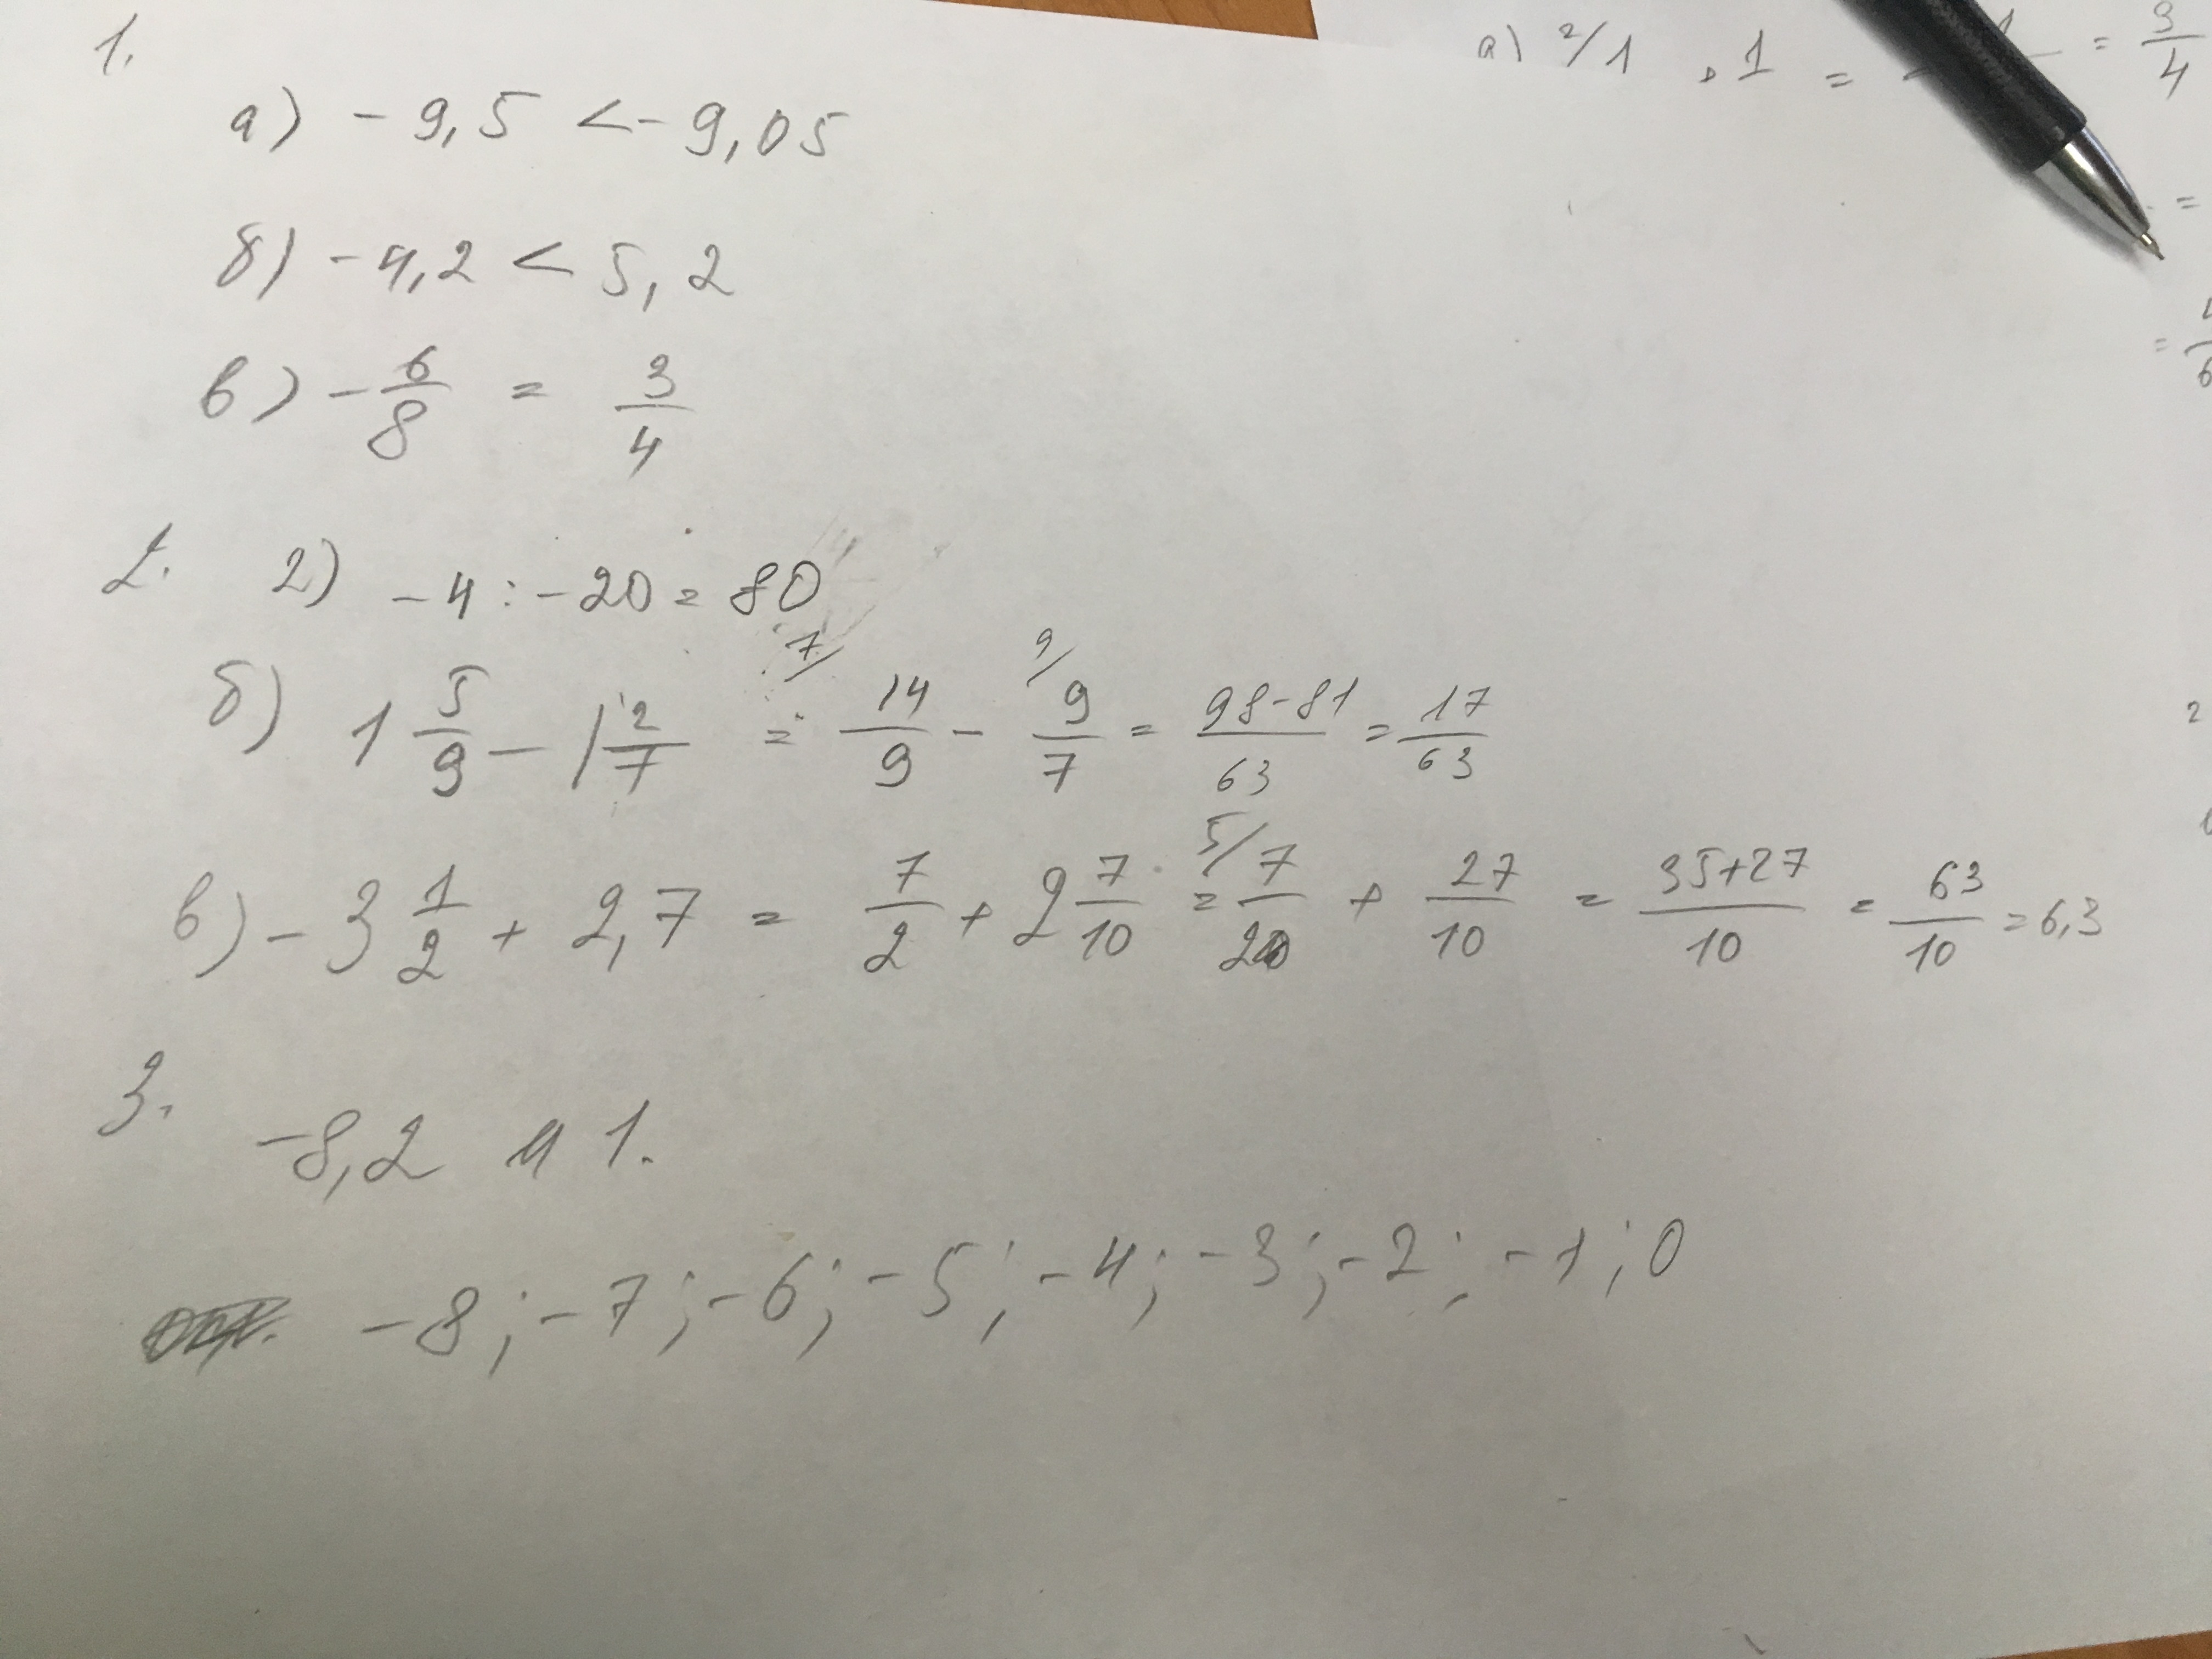 1.
а) -9,5 < -9,05
б) -4,2 < 5,2
в) -6/8 = 3/4
2. 2) -4 : -20 = 80
б) 1 5/9 - 1 2/7 = 7/ 14/9 - 9/ 9/7 = 98-81/63 = 17/63
в) -3 1/2 + 2,7 = 7/2 + 2 7/10 = 5/ 7/2 + 27/10 = 35+27/10 = 63/10 = 6,3
3.
-8,2 и 1.
-8; -7; -6; -5; -4; -3; -2; -1; 0
а) 2/1 · 1 = = 3/4